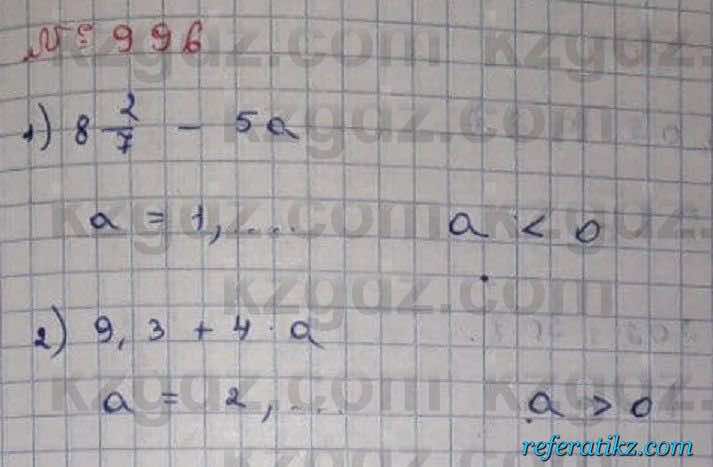 № 996
1) 8 2/7 - 5a
a = 1, .... a < 0
2) 9,3 + 4 · a
a = 2, ... a > 0
kzgdz.com
referatikz.com